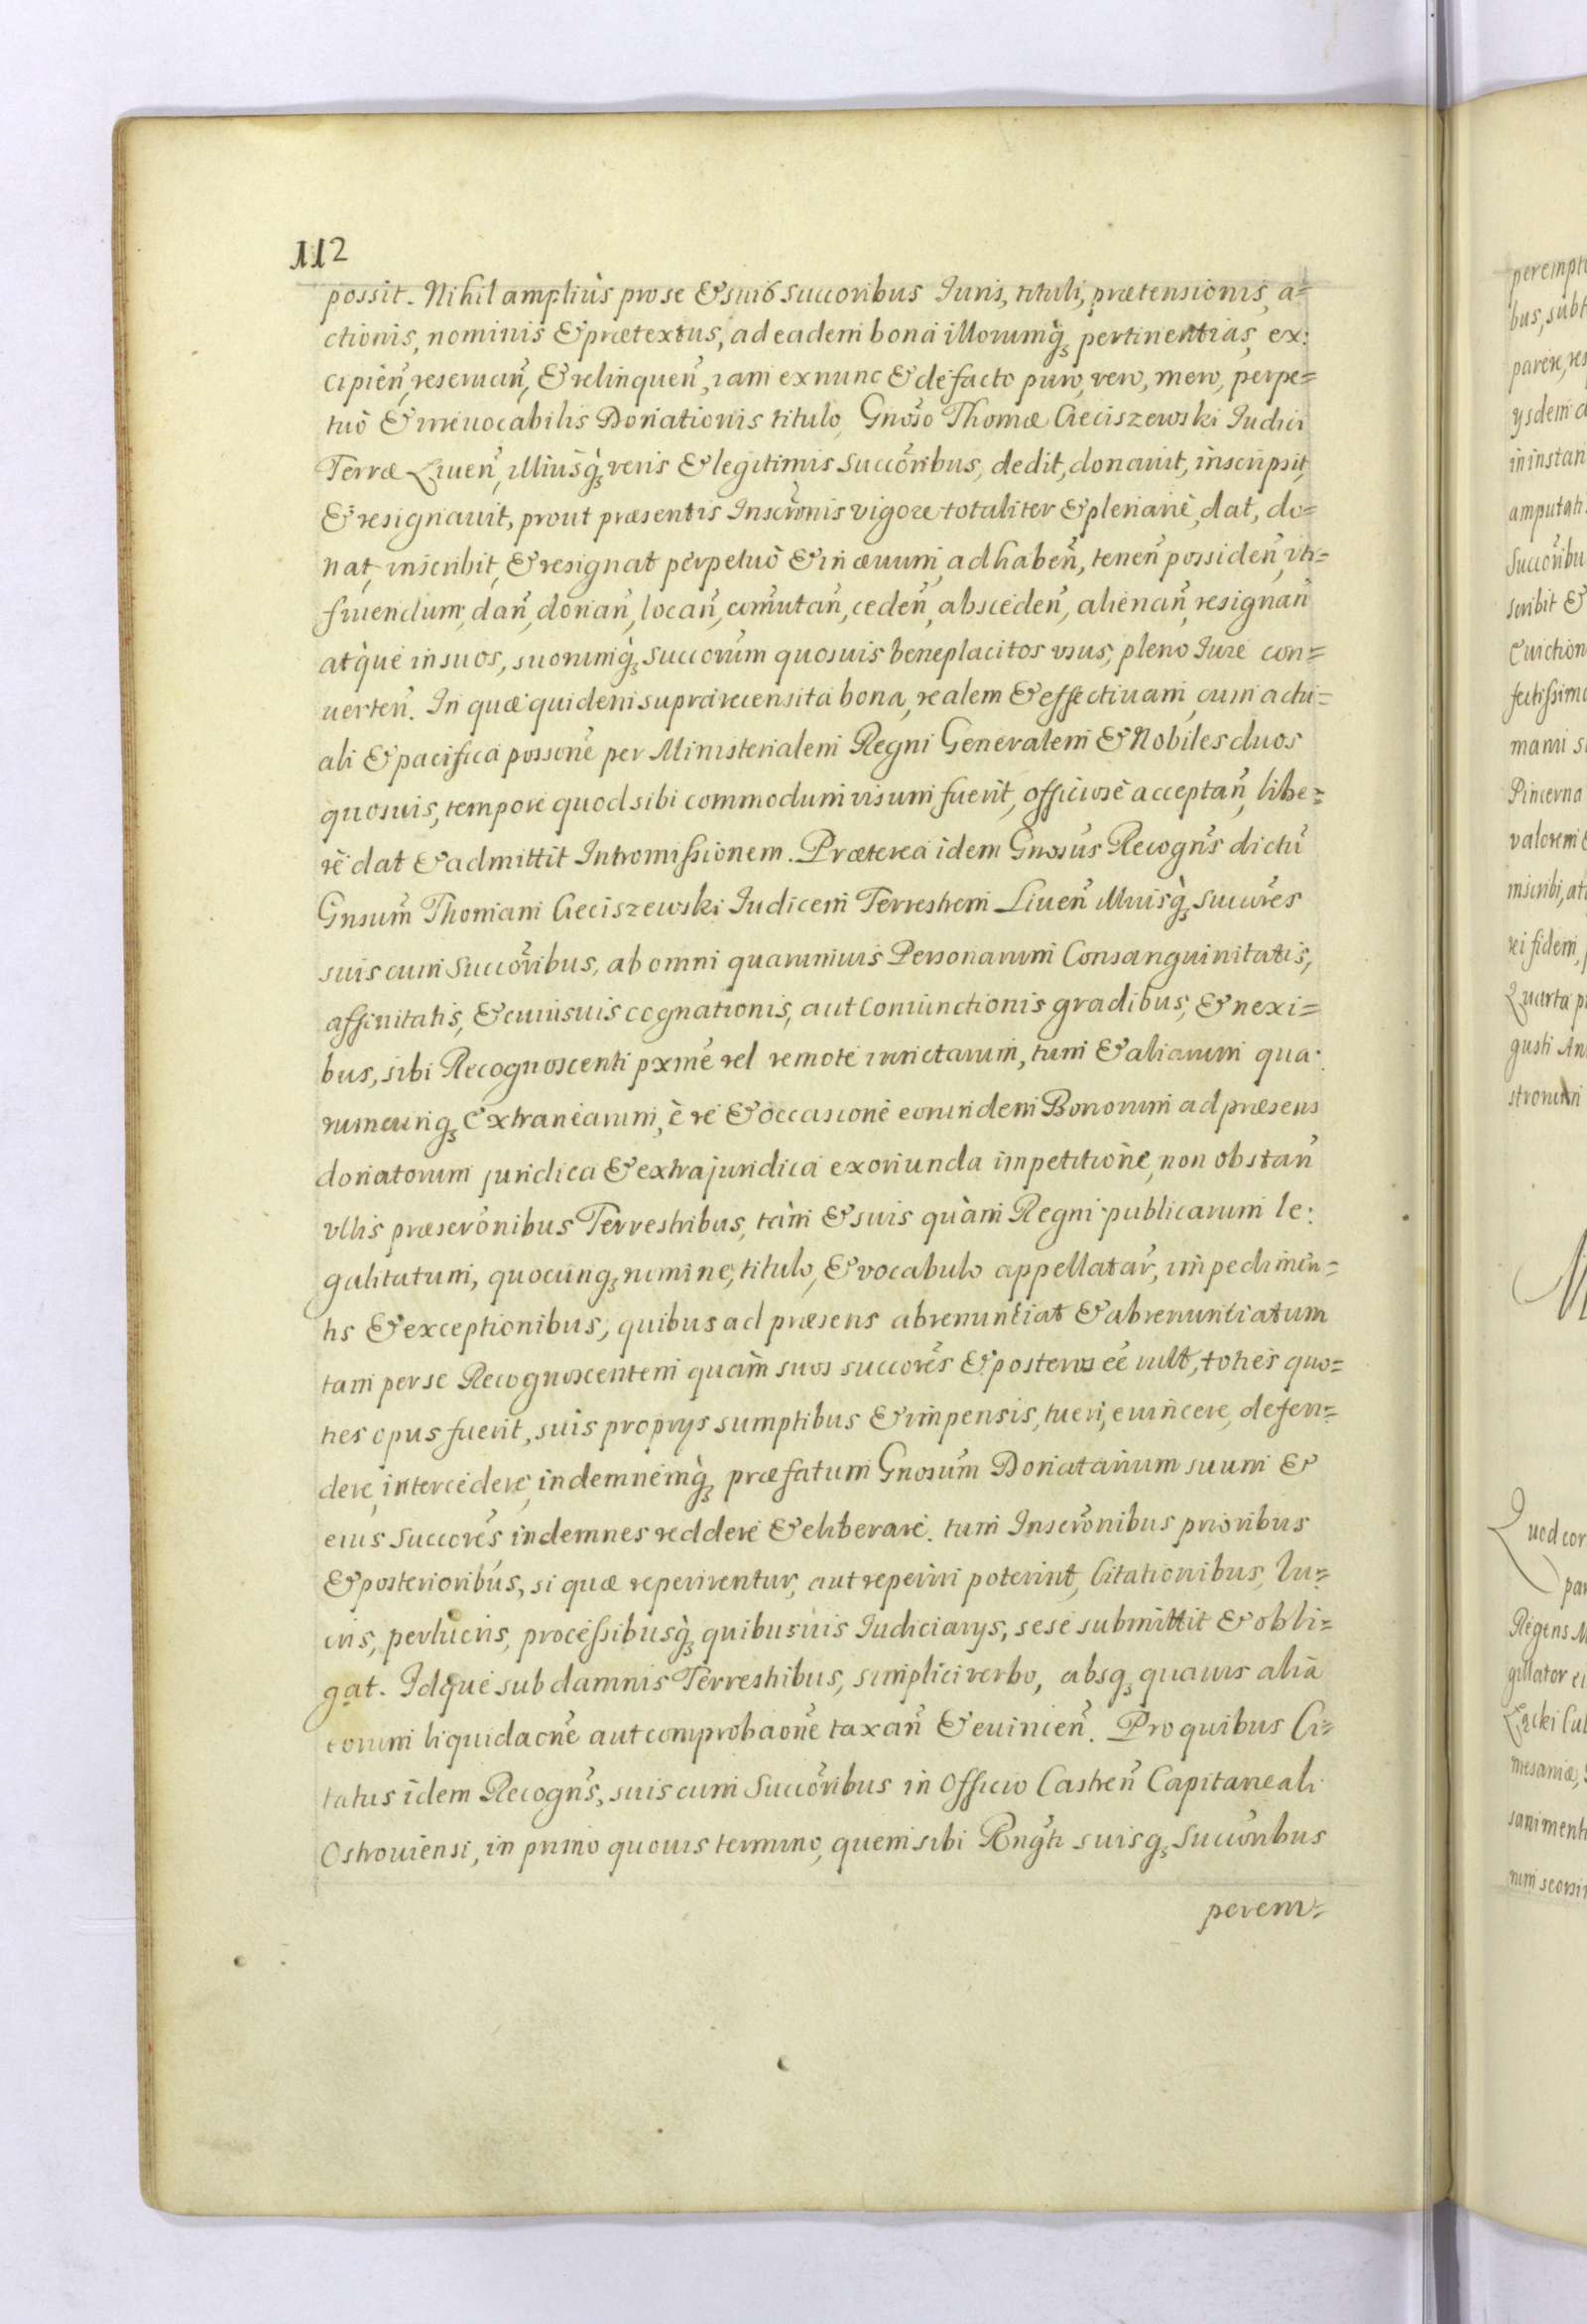 112
possit. Nihil ampliùs pro se & suis succoribus Iuris, tituli, prætensionis, a=
ctionis, nominis & prætextus, ad eadem bona illorumq̀ꝫ pertinentias, ex:
cipień, reseruań, & relinqueń, iam ex nunc & de facto puro, vero, mero, perpe=
tuò & irreuocabilis Donationis titulo, Gnośo Thomæ Cieciszewski Iudici
Terræ Liueń, illiusq̀ꝫ veris & legitimis succóribus, dedit, donauit, inscripsit,
& resignauit, prout præsentis Inscrónis vigore totaliter & plenariè, dat, do=
nat, inscribit, & resignat perpetuò & in æuum, ad habeń, teneń possideń, vti=
fruendum, dań, donań, locań, com̃utań, cedeń, abscedeń, alienań, resignań
atq̀ue in suos, suorumq̀ꝫ succorúm quosuis beneplacitos vsus, pleno Iure con=
uerteń. In quæ quidem supra recensita bona, realem & effectiuam, cum actu=
ali & pacifica possoné per Ministerialem Regni Generalem & Nobiles duos
quosuis, tempore quod sibi commodum visum fuerit, officiosè acceptań, libe=
rè dat & admittit Intromissionem. Præterea idem Gnosús Recognś dictú
Gnsúm Thomam Cieciszewski Iudicem Terrestrem Liueń illiusq̀ꝫ succóres
suis cum succóribus, ab omni quarumuis Personarum Consanguinitatis,
affinitatis, & cuiusuis cognationis, aut Coniunctionis gradibus, & nexi=
bus, sibi Recognoscenti pxmé vel remote iunctarum, tum & aliarum qua:
rumcunqꝫ Extranearum, è re & occasione eorundem Bonorum ad præsens
donatorum juridica & extrajuridica exoriunda impetitione, non obstań
vllis præscrónibus Terrestribus, tàm & suis quàm Regni publicarum le:
galitatum, quocunqꝫ nomine, titulo, & vocabulo appellatar̃, impedimen=
tis & exceptionibus, quibus ad præsens abrenuntiat & abrenuntiatum
tam per se Recognoscentem quàm suos succorés & posteros eé vult, toties quo=
ties opus fuerit, suis proprys sumptibus & impensis, tueri, euincere, defen=
dere, intercedere, indemnemq̀ꝫ præfatum Gnosúm Donatarium suum &
eius succorés indemnes reddere & eliberare. tum Inscrónibus prioribus
& posterioribus, si quæ reperirentur, aut reperiri poterint, Citationibus, Lu=
cris, perlucris, processibusq̀ꝫ quibusuis Iudiciarys, sese submittit & obli=
gat. Idque sub damnis Terrestribus, simplici verbo, absqꝫ quauis alia
eorum liquidaoné aut comprobaoné taxań & euincień. Pro quibus Ci=
tatus idem Recognś, suis cum Succóribus in Officio Castreń Capitaneali
Ostrouiensi, in primo quouis termino, quem sibi Rngti suisqꝫ Succóribus
perem=